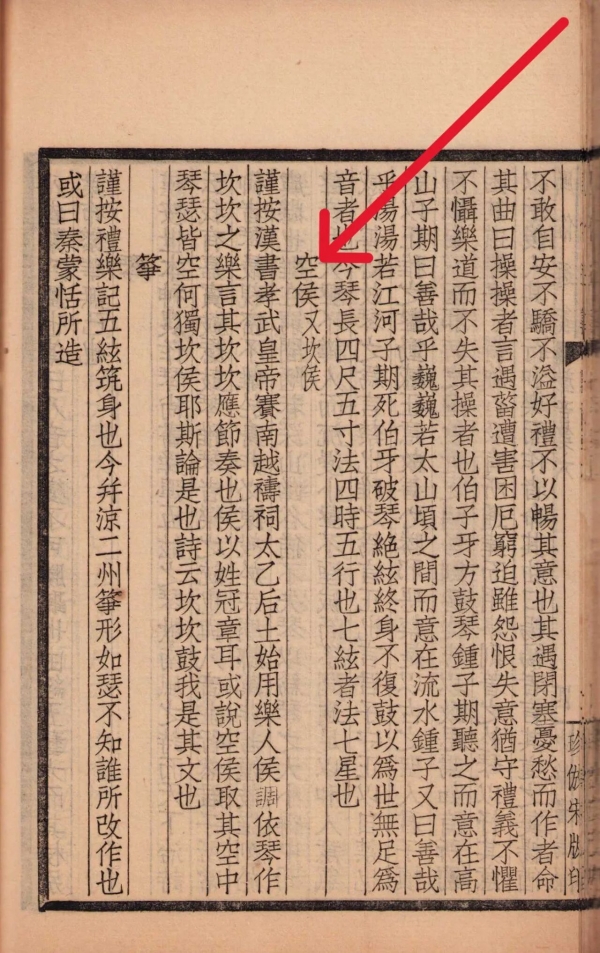 珍倣宋版印
不敢自安不驕不溢好禮不以暢其意也其遇閉塞憂愁而作者命
其曲曰操操者言遇菑遭害困厄窮迫雖怨恨失意猶守禮義不懼
不懾樂道而不失其操者也伯子牙方鼓琴鍾子期聽之而意在高
山子期曰善哉乎巍巍若太山頃之間而意在流水鍾子又曰善哉
乎湯湯若江河子期死伯牙破琴絶絃終身不復鼓以爲世無足爲
音者也今琴長四尺五寸法四時五行也七絃者法七星也
空侯又坎侯
謹按漢書孝武皇帝賽南越禱祠太乙后土始用樂人侯調依琴作
坎坎之樂言其坎坎應節奏也侯以姓冠章耳或說空侯取其空中
琴瑟皆空何獨坎侯耶斯論是也詩云坎坎鼓我是其文也
箏
謹按禮樂記五絃筑身也今幷涼二州箏形如瑟不知誰所改作也
或曰秦蒙恬所造